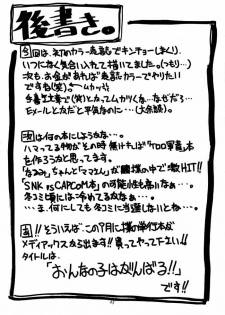 後書き。
今回は、初のカラー表紙でキンチョーしまくり、
いつになく気合い入れて描いてました。(つもり…)
次も、お金があれば表紙カラーでやりたい
ですね(笑)。
(笑)となってムカツくな…なぜだろ…
Eメールとかだと平気なのに…(大余談)。
次は何の本にしようかな…。
ハマってる物がその時無ければ「TOD軍書」本
を作ろうかと思ってます。
「なるみ」ちゃんと「マさん」が 僕の中で激HIT!!
「SNK vs CAPCOM本」の可能性も高いなぁ…。
冬コミ頃には冷めてるかなぁ…。
…ま、何にしても冬コミに当選しないとね…。
あ!!そういえば、この9月に僕の単行本が
メディアックスから出ます!!買ってやって下さい!!
タイトルは、
「おんなの子はがんばる!!」
です!!